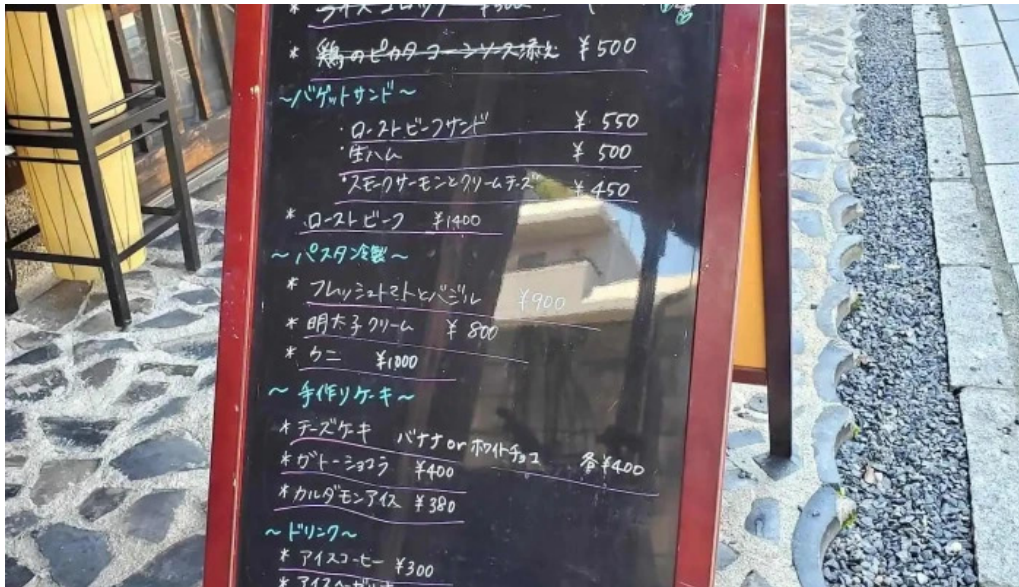 * ライスコロッケ ¥300
* 鶏のピカタ コーンソース添え ¥500
~バゲットサンド~
・ローストビーフサンド ¥550
・生ハム ¥500
・スモークサーモンとクリームチーズ ¥450
* ローストビーフ ¥1400
~パスタ冷製~
* フレッシュトマトとバジル ¥900
* 明太子クリーム ¥800
* ウニ ¥1000
~手作りケーキ~
* チーズケーキ バナナ or ホワイトチョコ 各¥400
* ガトーショコラ ¥400
* カルダモンアイス ¥380
~ドリンク~
* アイスコーヒー ¥300